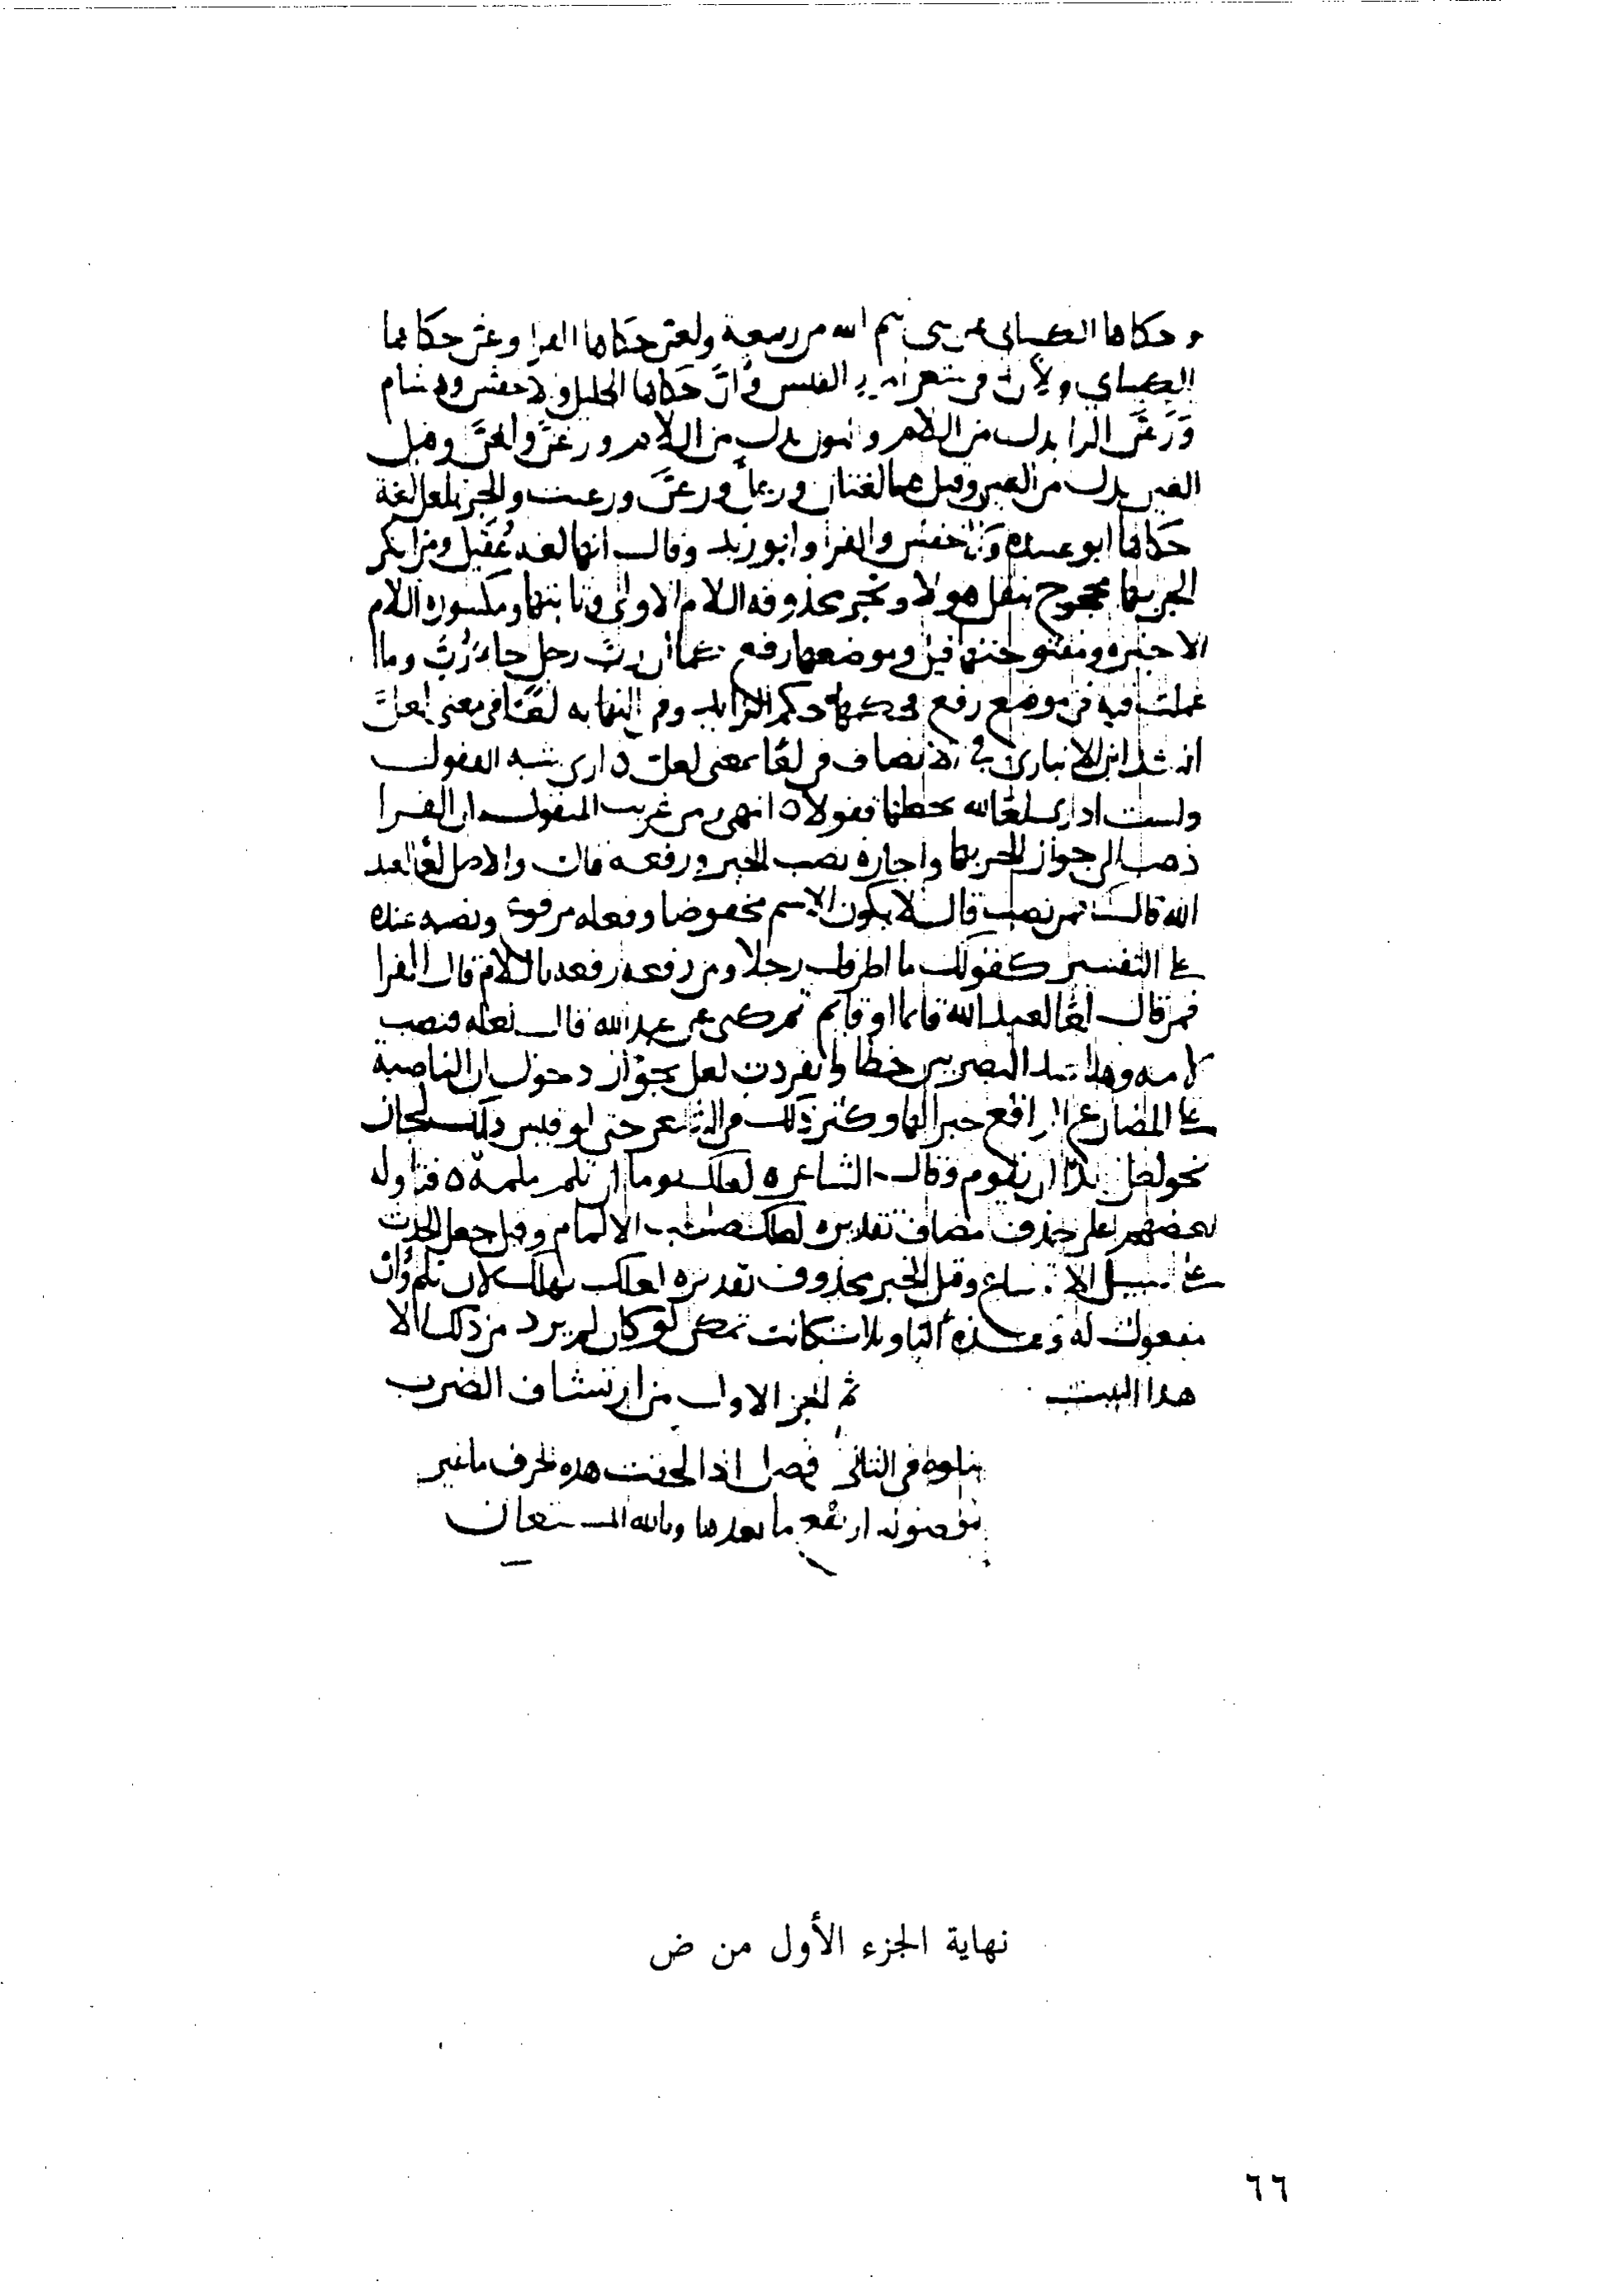 وحكاها الكسائي عن بني تيم الله من ربيعة ولعن حكاها الفرا وغن حكاهما
الكسائي ولأن في شعر امرء القيس وأنَّ حكاها الخليل والاخفش وهشام
وَرَعَنَّ الرا بدل من اللام والنون بدل من اللام ورغنَّ ولغنَّ وقيل
الغين بدل من العين وقيل هما لغتان وربما ورعنَّ ورغنت والجر بلعل لغة
حكاها ابو عبيده والاخفش والفرا وابو زيد وقال انها لغة عُقَيل ومن انكر
الجر بها محجوج بنقل هولا وتجر محذوفه اللام الاولى وثابتتها ومكسوره اللام
الاخيره ومفتوحتها قيل وموضعها رفع كما ان رب رجل جا رُبَّ وما
عملت فيه في موضع رفع فحكمها حكم الزايد وفي النهايه لغنَّا في معنى لعلَّ
انشد ابن الانباري في الانصاف في لغا بمعنى لعل داري شبه القفول
ولست اداري لغا الله يحطها قفولا ه انتهى ومن غريب المنقول ان الفرا
ذهب الى جواز الجر بها واجازه نصب الخبر ورفعه قال والاصل لعا لعبد
الله قال ثم نصب قال لا يكون الاسم مخفوضا وفعله مرفوع ونصبه عنده
على التفسير كقولك ما اظرفك رجلا ومن رفعه رفعه باللام قال الفرا
فمن قال لعا لعبد الله قايما او قايم ثم كنى عن عبد الله قال لعله فنصب
كلامه وهذا عند البصريين خطا وانفردت لعل بجواز دخول ان الناصبة
على المضارع الواقع خبرا لها وكثر ذلك في الشعر حتى لو قيس ذلك لجاز
نحو لعل زيدا ان يقوم وقال الشاعر ه لعلك يوما ان تلم ملمة ه فتاوله
بعضهم على حذف مضاف تقديره لعلك صاحب الالمام وقيل جعل الحدث
على سبيل الاتساع وقيل الخبر محذوف تقديره لعلك تهلك لان تلم وأن
مفعول له وهذه التاويلات كانت تمكن لو كان لم يرد من ذلك الا
هذا البيت تم الجز الاول من ارتشاف الضرب
يتلوه في الثاني فصل اذا لحقت هذه الحرف ما غير
موصوله ارتفع ما بعدها وبالله المستعان
نهاية الجزء الأول من ض
٦٦